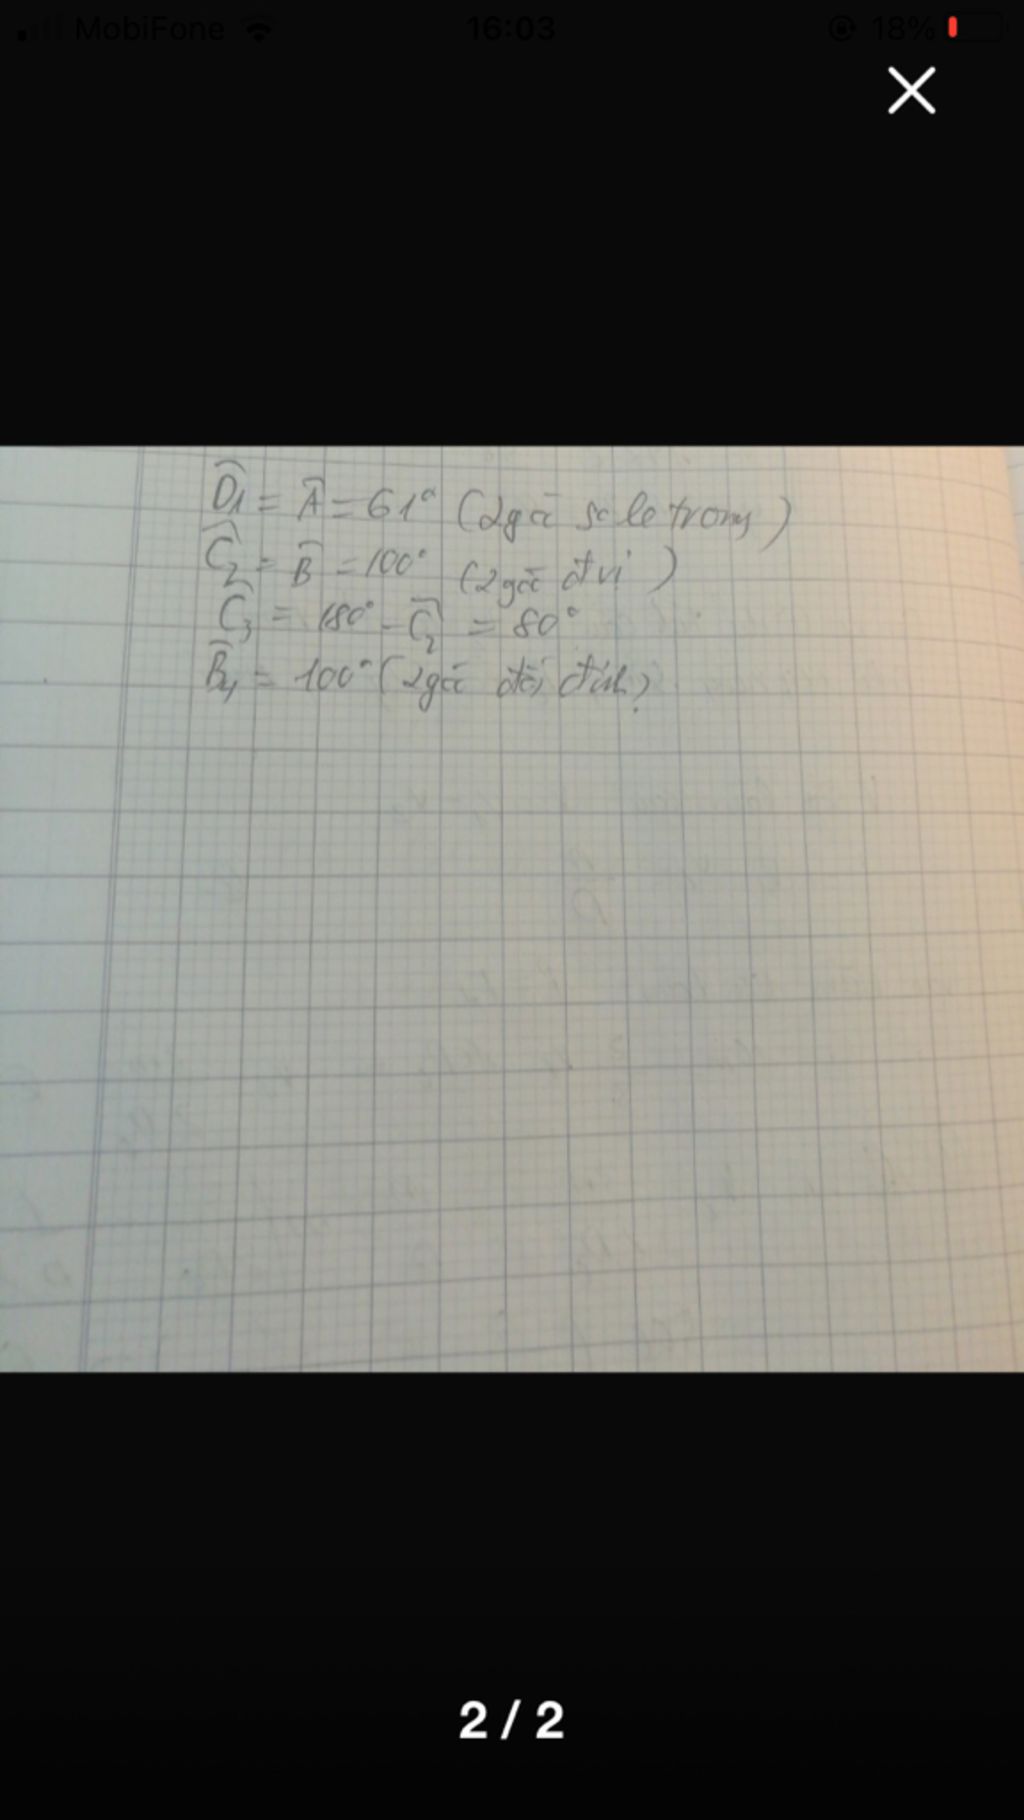 MobiFone 16:03 18%
D̂1 = Â = 61° (2 góc so le trong)
Ĉ2 = B̂ = 100° (2 góc đ vị)
Ĉ3 = 180° - Ĉ2 = 80°
B̂4 = 100° (2 góc đối đỉnh)
2 / 2